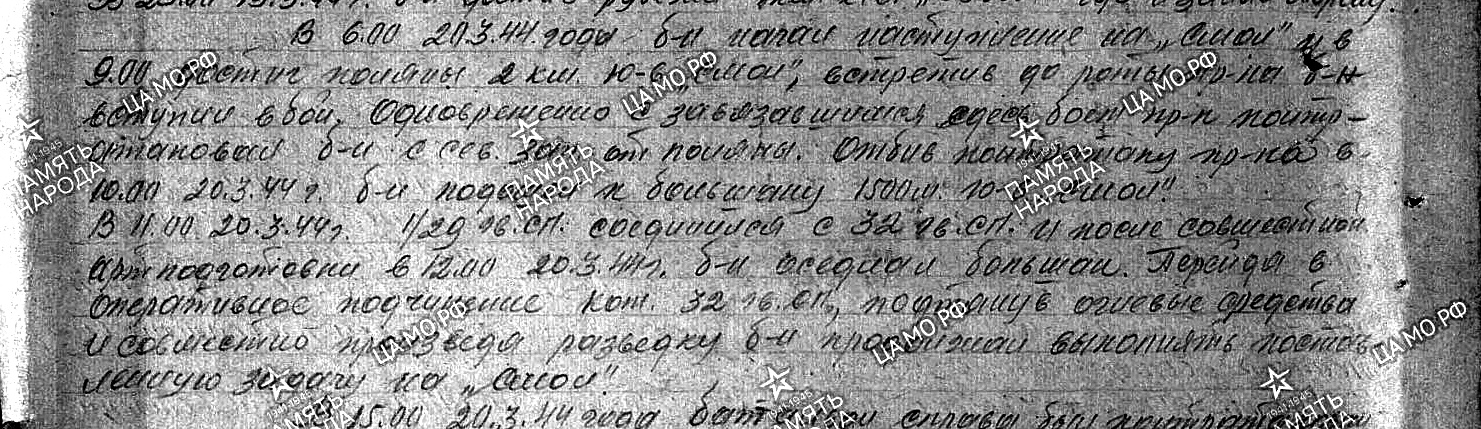 В 6.00 20.3.44 года б-н начал наступление на „Смол" и в
9.00 достиг поляны 2 км. ю-в „Смол", встретив до роты пр-ка б-н
вступил в бой. Одновременно с завязавшимся здесь боем пр-к контр-
атаковал б-н с сев. зап. от поляны. Отбив контратаку пр-ка в
10.00 20.3.44 г. б-н подошел к большаку 1500 м. ю-в „Смол".
В 11.00 20.3.44 г. 1/29 гв. сп. соединился с 32 гв. сп. и после совместной
артподготовки в 12.00 20.3.44 г. б-н оседлал большак. Перейдя в
оперативное подчинение ком. 32 гв. сп, подтянув огневые средства
и совместно произведя разведку б-н продолжал выполнять постав-
ленную задачу на „Смол"
15.00 20.3.44 года батальон справа был
ЦА МО РФ
ПАМЯТЬ НАРОДА
1941-1945